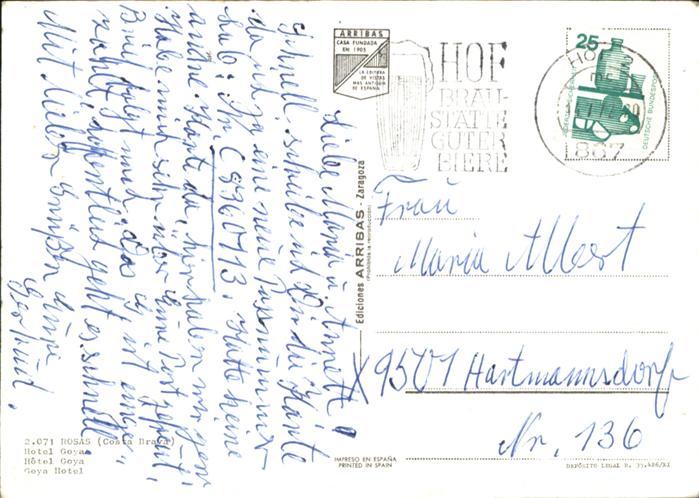 Liebe Maria u. Annett!
Schnell schreibe ich Dir die Karte
damit ja eine neue Passnummer
hab: Ph, C 9360713. Hatte keine
andre Karte da,
Habe mich sehr über Deine Post gefreut!
Brief folgt noch. Das ist einge-
zahlt, hoffentlich geht es schnell.
Mit lieben Grüßen Eure
Gertraud.
ARRIBAS
CASA FUNDADA
EN 1905
LA EDITORA
DE VISTAS
MAS ANTIGUA
DE ESPAÑA
HOF
BRAU-
STÄTTE
GUTER
BIERE
HOF
867
25
DEUTSCHE BUNDESPOST
Ediciones ARRIBAS - Zaragoza
(Prohibida la reproducción)
Frau
Maria Albert
X 9501 Hartmannsdorf
Nr. 136
2.071 ROSAS (Costa Brava)
Hotel Goya
Hôtel Goya
Goya Hotel
IMPRESO EN ESPAÑA
PRINTED IN SPAIN
DEPÓSITO LEGAL B. 35.486/XI